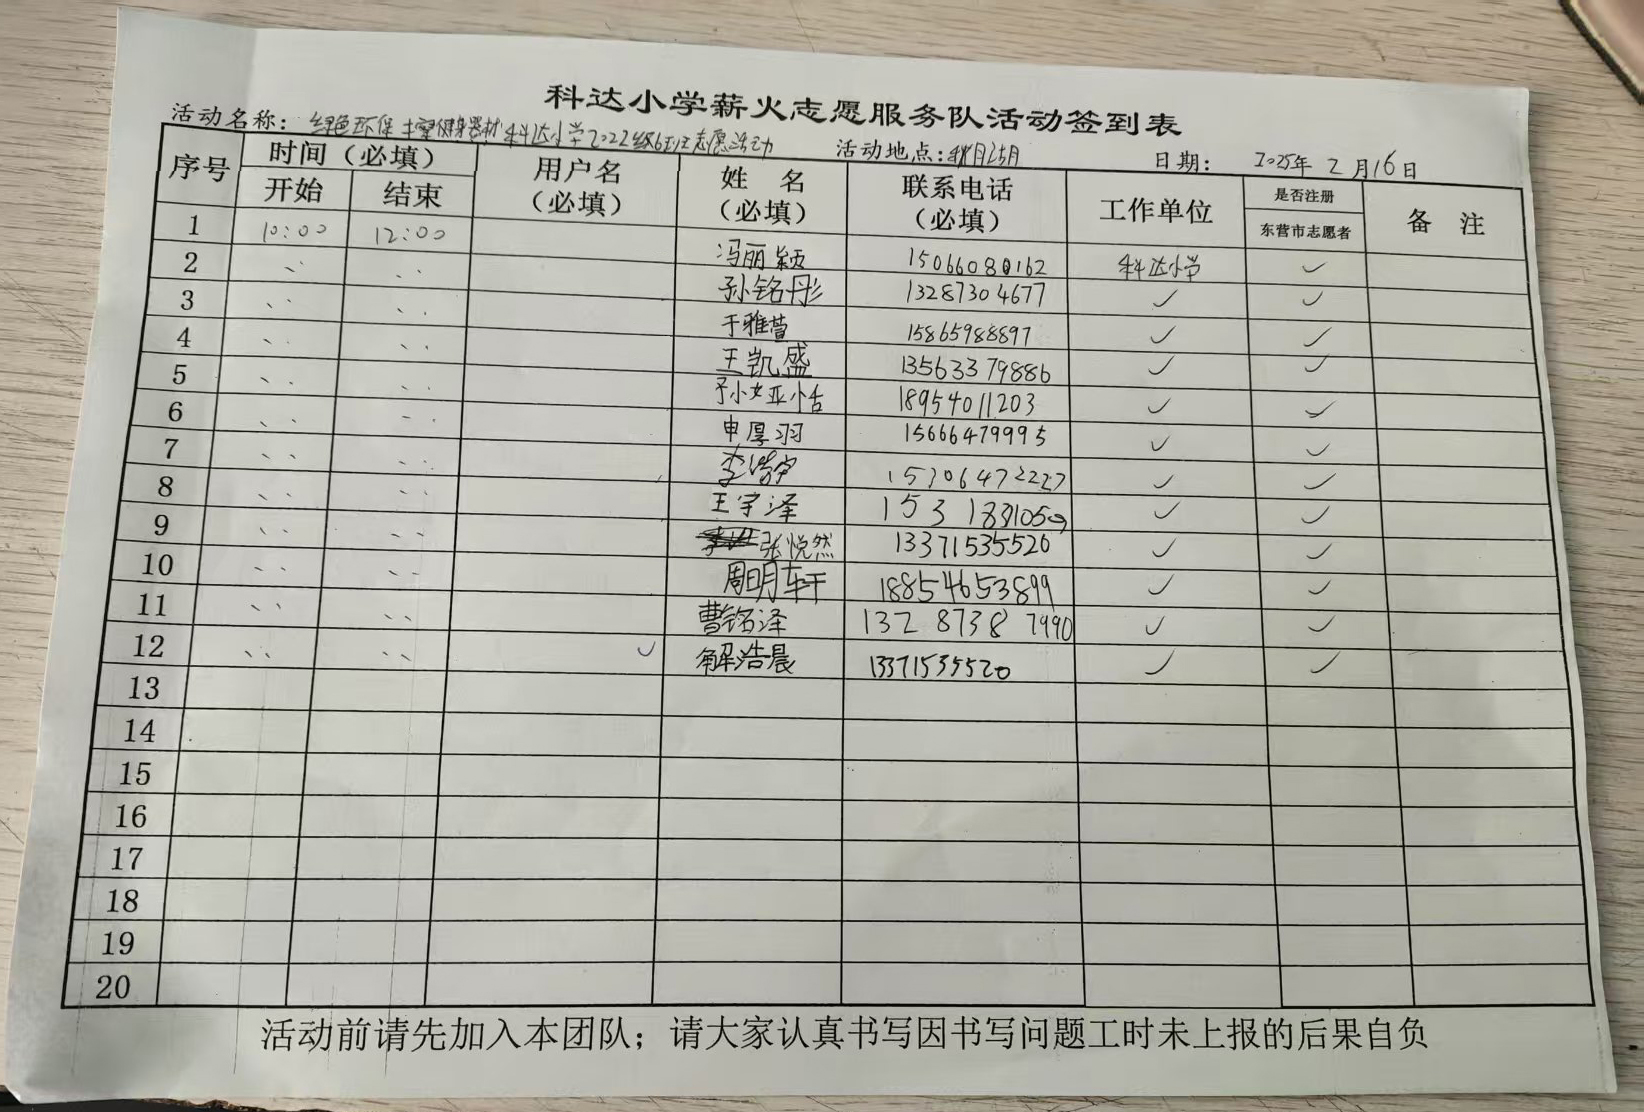 科达小学薪火志愿服务队活动签到表
活动名称：绿色环保 健身器材 科达小学2022级6班志愿活动 活动地点：月湖 日期：2025年2月16日
序号 时间（必填） 用户名（必填） 姓名（必填） 联系电话（必填） 工作单位 是否注册 备注
开始 结束 东营市志愿者
1 10:00 12:00 冯丽颖 15066080162 科达小学 ✓
2 〃 〃 孙铭彤 13287304677 ✓ ✓
3 〃 〃 于雅萱 15865988897 ✓ ✓
4 〃 〃 王凯盛 13563379886 ✓ ✓
5 〃 〃 18954011203 ✓ ✓
6 〃 〃 申厚羽 15666479995 ✓ ✓
7 〃 〃 李浩宇 15306472227 ✓ ✓
8 〃 〃 王宇泽 ✓ ✓
9 〃 〃 张悦然 13371535520 ✓ ✓
10 〃 〃 周明轩 18854653899 ✓ ✓
11 〃 〃 曹铭泽 132 8738 7990 ✓ ✓
12 〃 〃 ✓ 解浩晨 13371535520 ✓ ✓
13
14
15
16
17
18
19
20
活动前请先加入本团队；请大家认真书写因书写问题工时未上报的后果自负